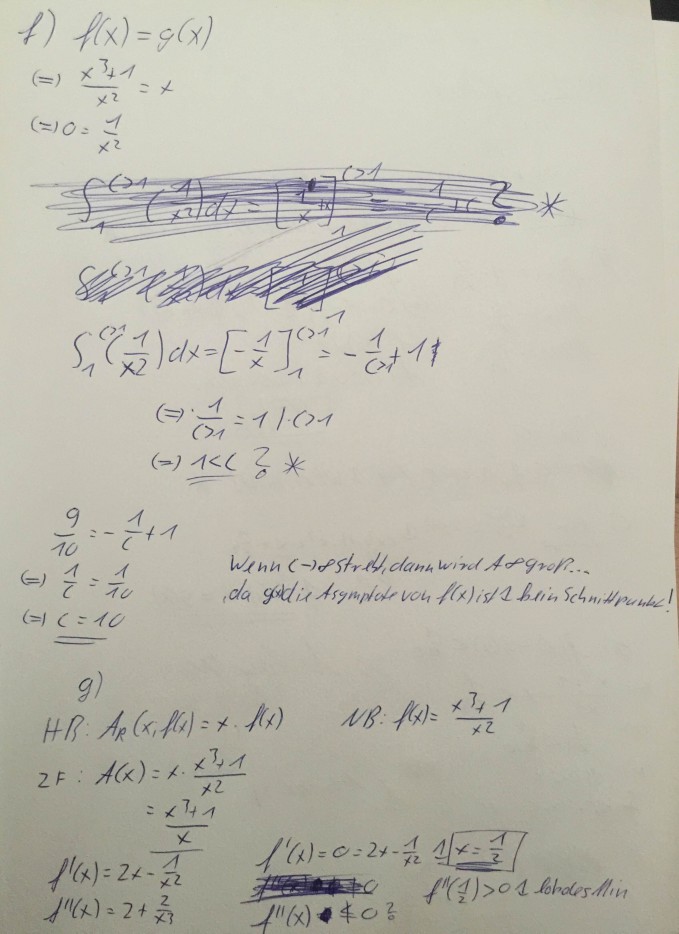 f) f(x) = g(x)
(=) x³+1/x² = x
(=) 0 = 1/x²
*
∫₁^(c>1) (1/x²) dx = [-1/x]₁^(c>1) = - 1/(c>1) + 1
(=) 1/(c>1) = 1 | · c>1
(=) 1<c ? *
9/10 = - 1/c + 1
(=) 1/c = 1/10
(=) c = 10
Wenn c→∞ strebt, dann wird A ∞ groß...
, da die Asymptote von f(x) ist kein Schnittpunkt!
g)
HB: A_R(x, f(x) = x · f(x)
NB: f(x) = x³+1/x²
ZF: A(x) = x · x³+1/x²
= x³+1/x
f'(x) = 2x - 1/x²
f''(x) = 2 + 2/x³
f'(x) = 0 = 2x - 1/x²
x = 1/2
f''(x) ≠ 0 ?
f''(1/2) > 0 lokales Min